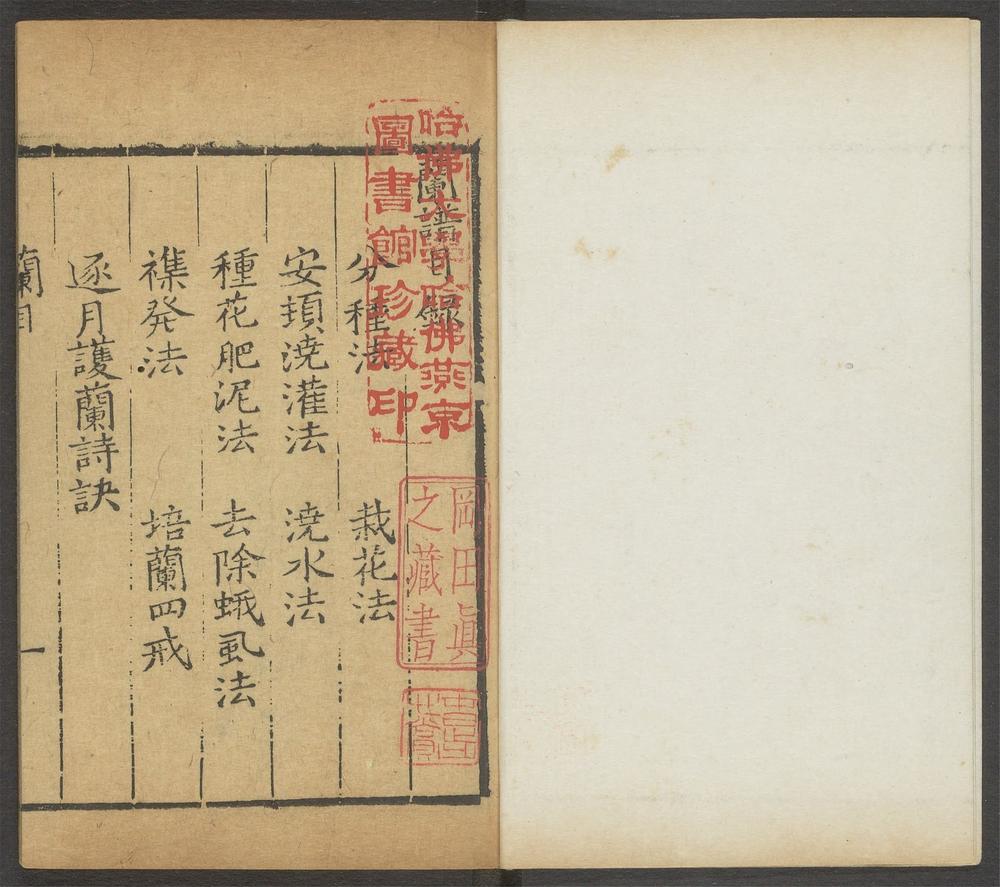 蘭譜目錄
分種法 栽花法
安頓澆灌法 澆水法
種花肥泥法 去除蛾虱法
襍發法 培蘭四戒
逐月護蘭詩訣
蘭目
一
哈佛大學哈佛燕京
圖書館珍藏印
岡田眞
之藏書